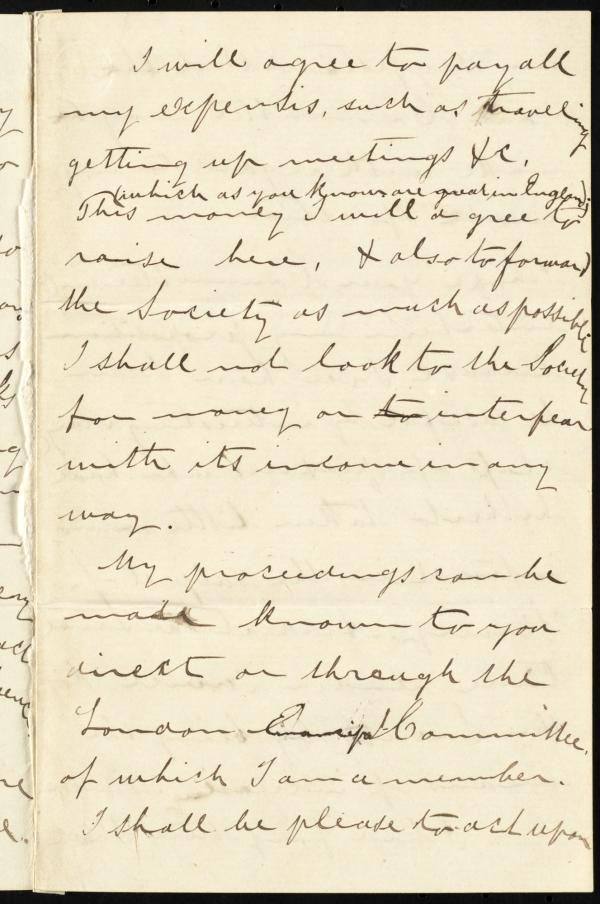 I will agree to pay all
my expensis, such as traveling
getting up meetings &c,
(which as you know are great in England);
This money I will agree to
raise here, & also to forward
the Society as much as possible
I shall not look to the Society
for money or to interfear
with its income in any
way.
My proceedings can be
made known to you
direct or through the
London Emancipt Committee,
of which I am a member.
I shall be please to act upon